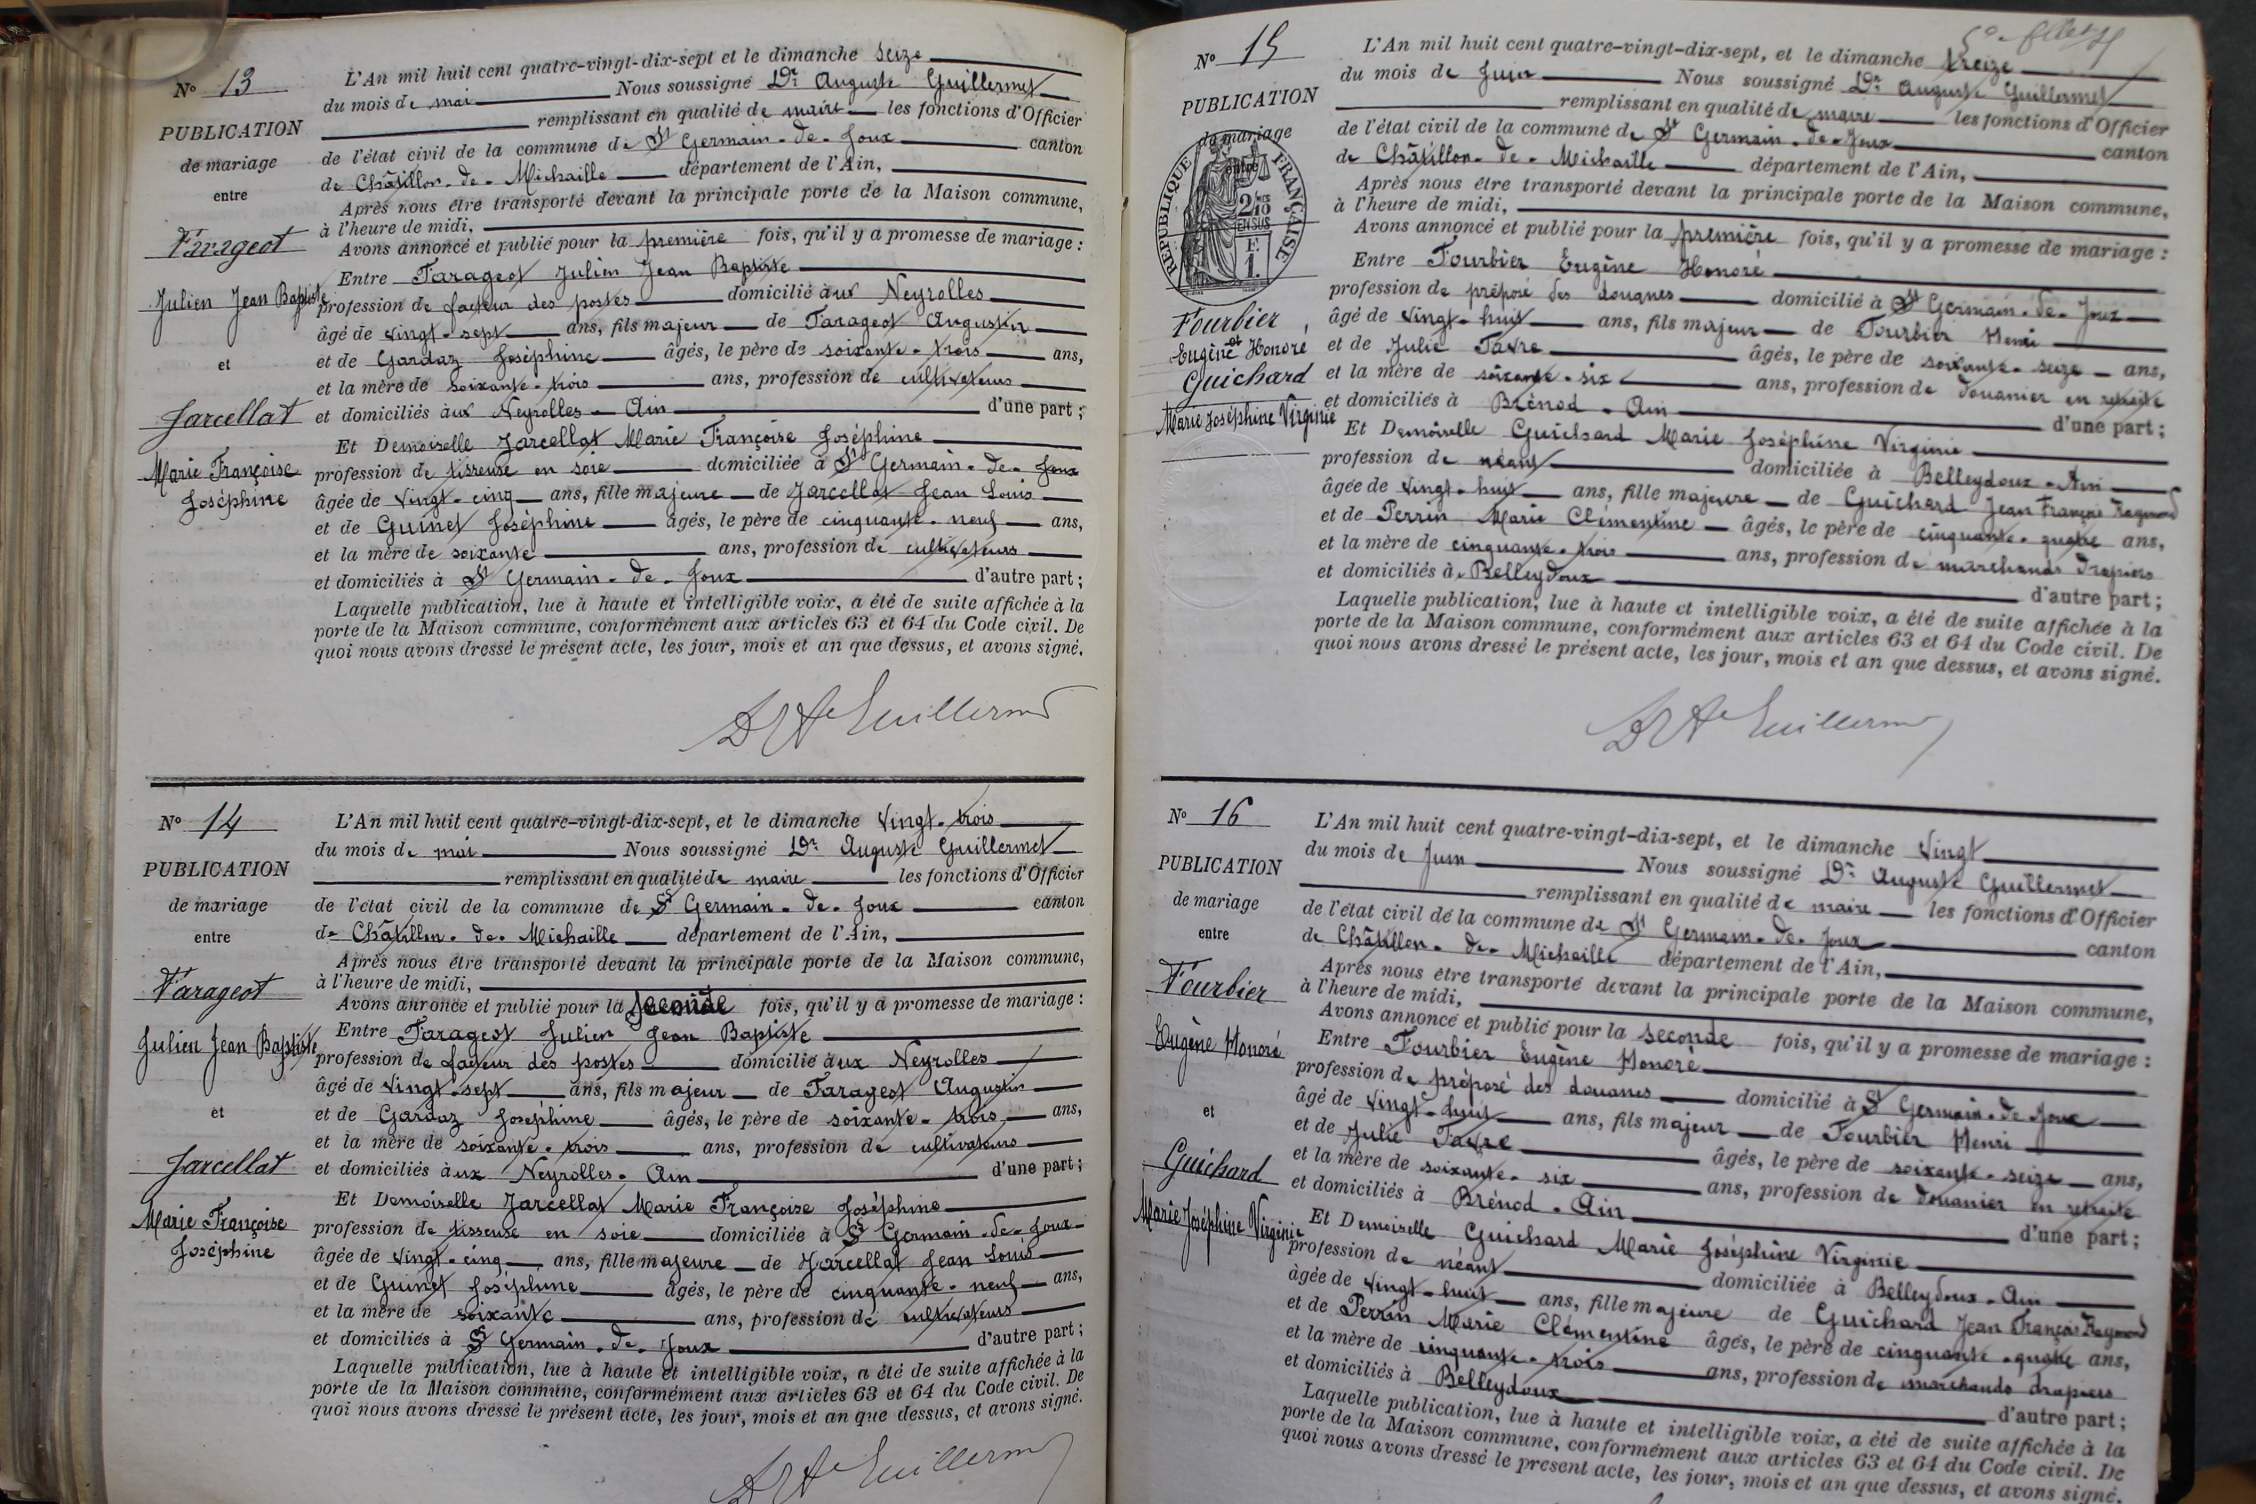 N° 13
PUBLICATION
de mariage
entre
Farageot
Julien Jean Baptiste
et
Jarcellat
Marie Françoise
Joséphine
L'An mil huit cent quatre-vingt-dix-sept et le dimanche seize
du mois de mai Nous soussigné Dr Auguste Guillermet
remplissant en qualité de maire les fonctions d'Officier
de l'état civil de la commune de St Germain-de-Joux canton
de Châtillon-de-Michaille département de l'Ain,
Après nous être transporté devant la principale porte de la Maison commune,
à l'heure de midi,
Avons annoncé et publié pour la première fois, qu'il y a promesse de mariage :
Entre Farageot Julien Jean Baptiste
profession de facteur des postes domicilié aux Neyrolles
âgé de vingt-sept ans, fils majeur de Farageot Augustin
et de Gardaz Joséphine âgés, le père de soixante-trois ans,
et la mère de soixante-trois ans, profession de cultivateurs
et domiciliés aux Neyrolles - Ain d'une part ;
Et Demoiselle Jarcellat Marie Françoise Joséphine
profession de tisseuse en soie domiciliée à St Germain-de-Joux
âgée de vingt-cinq ans, fille majeure de Jarcellat Jean Louis
et de Guinet Joséphine âgés, le père de cinquante-neuf ans,
et la mère de soixante ans, profession de cultivateurs
et domiciliés à St Germain-de-Joux d'autre part ;
Laquelle publication, lue à haute et intelligible voix, a été de suite affichée à la
porte de la Maison commune, conformément aux articles 63 et 64 du Code civil. De
quoi nous avons dressé le présent acte, les jour, mois et an que dessus, et avons signé.
Dr Ate Guillermet
N° 14
PUBLICATION
de mariage
entre
Farageot
Julien Jean Baptiste
et
Jarcellat
Marie Françoise
Joséphine
L'An mil huit cent quatre-vingt-dix-sept, et le dimanche vingt-trois
du mois de mai Nous soussigné Dr Auguste Guillermet
remplissant en qualité de maire les fonctions d'Officier
de l'état civil de la commune de St Germain-de-Joux canton
de Châtillon-de-Michaille département de l'Ain,
Après nous être transporté devant la principale porte de la Maison commune,
à l'heure de midi,
Avons annoncé et publié pour la seconde fois, qu'il y a promesse de mariage :
Entre Farageot Julien Jean Baptiste
profession de facteur des postes domicilié aux Neyrolles
âgé de vingt-sept ans, fils majeur de Farageot Augustin
et de Gardaz Joséphine âgés, le père de soixante-trois ans,
et la mère de soixante-trois ans, profession de cultivateurs
et domiciliés aux Neyrolles - Ain d'une part ;
Et Demoiselle Jarcellat Marie Françoise Joséphine
profession de tisseuse en soie domiciliée à St Germain-de-Joux
âgée de vingt-cinq ans, fille majeure de Jarcellat Jean Louis
et de Guinet Joséphine âgés, le père de cinquante-neuf ans,
et la mère de soixante ans, profession de cultivateurs
et domiciliés à St Germain-de-Joux d'autre part ;
Laquelle publication, lue à haute et intelligible voix, a été de suite affichée à la
porte de la Maison commune, conformément aux articles 63 et 64 du Code civil. De
quoi nous avons dressé le présent acte, les jour, mois et an que dessus, et avons signé.
Dr Ate Guillermet
N° 15
PUBLICATION
de mariage
entre
RÉPUBLIQUE FRANÇAISE
2/10 EN SUS
F. 1.
Fourbier
Eugène Honoré
et
Guichard
Marie Joséphine Virginie
L'An mil huit cent quatre-vingt-dix-sept, et le dimanche treize
du mois de Juin Nous soussigné Dr Auguste Guillermet
remplissant en qualité de maire les fonctions d'Officier
de l'état civil de la commune de St Germain-de-Joux canton
de Châtillon-de-Michaille département de l'Ain,
Après nous être transporté devant la principale porte de la Maison commune,
à l'heure de midi,
Avons annoncé et publié pour la première fois, qu'il y a promesse de mariage :
Entre Fourbier Eugène Honoré
profession de préposé des douanes domicilié à St Germain-de-Joux
âgé de vingt-huit ans, fils majeur de Fourbier Henri
et de Julie Favre âgés, le père de soixante-seize ans,
et la mère de soixante-six ans, profession de douanier en retraite
et domiciliés à Brénod - Ain d'une part ;
Et Demoiselle Guichard Marie Joséphine Virginie
profession de néant domiciliée à Belleydoux - Ain
âgée de vingt-huit ans, fille majeure de Guichard Jean François Raymond
et de Perrin Marie Clémentine âgés, le père de cinquante-quatre ans,
et la mère de cinquante-trois ans, profession de marchands drapiers
et domiciliés à Belleydoux d'autre part ;
Laquelle publication, lue à haute et intelligible voix, a été de suite affichée à la
porte de la Maison commune, conformément aux articles 63 et 64 du Code civil. De
quoi nous avons dressé le présent acte, les jour, mois et an que dessus, et avons signé.
Dr Ate Guillermet
N° 16
PUBLICATION
de mariage
entre
Fourbier
Eugène Honoré
et
Guichard
Marie Joséphine Virginie
L'An mil huit cent quatre-vingt-dix-sept, et le dimanche vingt
du mois de Juin Nous soussigné Dr Auguste Guillermet
remplissant en qualité de maire les fonctions d'Officier
de l'état civil de la commune de St Germain-de-Joux canton
de Châtillon-de-Michaille département de l'Ain,
Après nous être transporté devant la principale porte de la Maison commune,
à l'heure de midi,
Avons annoncé et publié pour la seconde fois, qu'il y a promesse de mariage :
Entre Fourbier Eugène Honoré
profession de préposé des douanes domicilié à St Germain-de-Joux
âgé de vingt-huit ans, fils majeur de Fourbier Henri
et de Julie Favre âgés, le père de soixante-seize ans,
et la mère de soixante-six ans, profession de douanier en retraite
et domiciliés à Brénod - Ain d'une part ;
Et Demoiselle Guichard Marie Joséphine Virginie
profession de néant domiciliée à Belleydoux - Ain
âgée de vingt-huit ans, fille majeure de Guichard Jean François Raymond
et de Perrin Marie Clémentine âgés, le père de cinquante-quatre ans,
et la mère de cinquante-trois ans, profession de marchands drapiers
et domiciliés à Belleydoux d'autre part ;
Laquelle publication, lue à haute et intelligible voix, a été de suite affichée à la
porte de la Maison commune, conformément aux articles 63 et 64 du Code civil. De
quoi nous avons dressé le présent acte, les jour, mois et an que dessus, et avons signé.